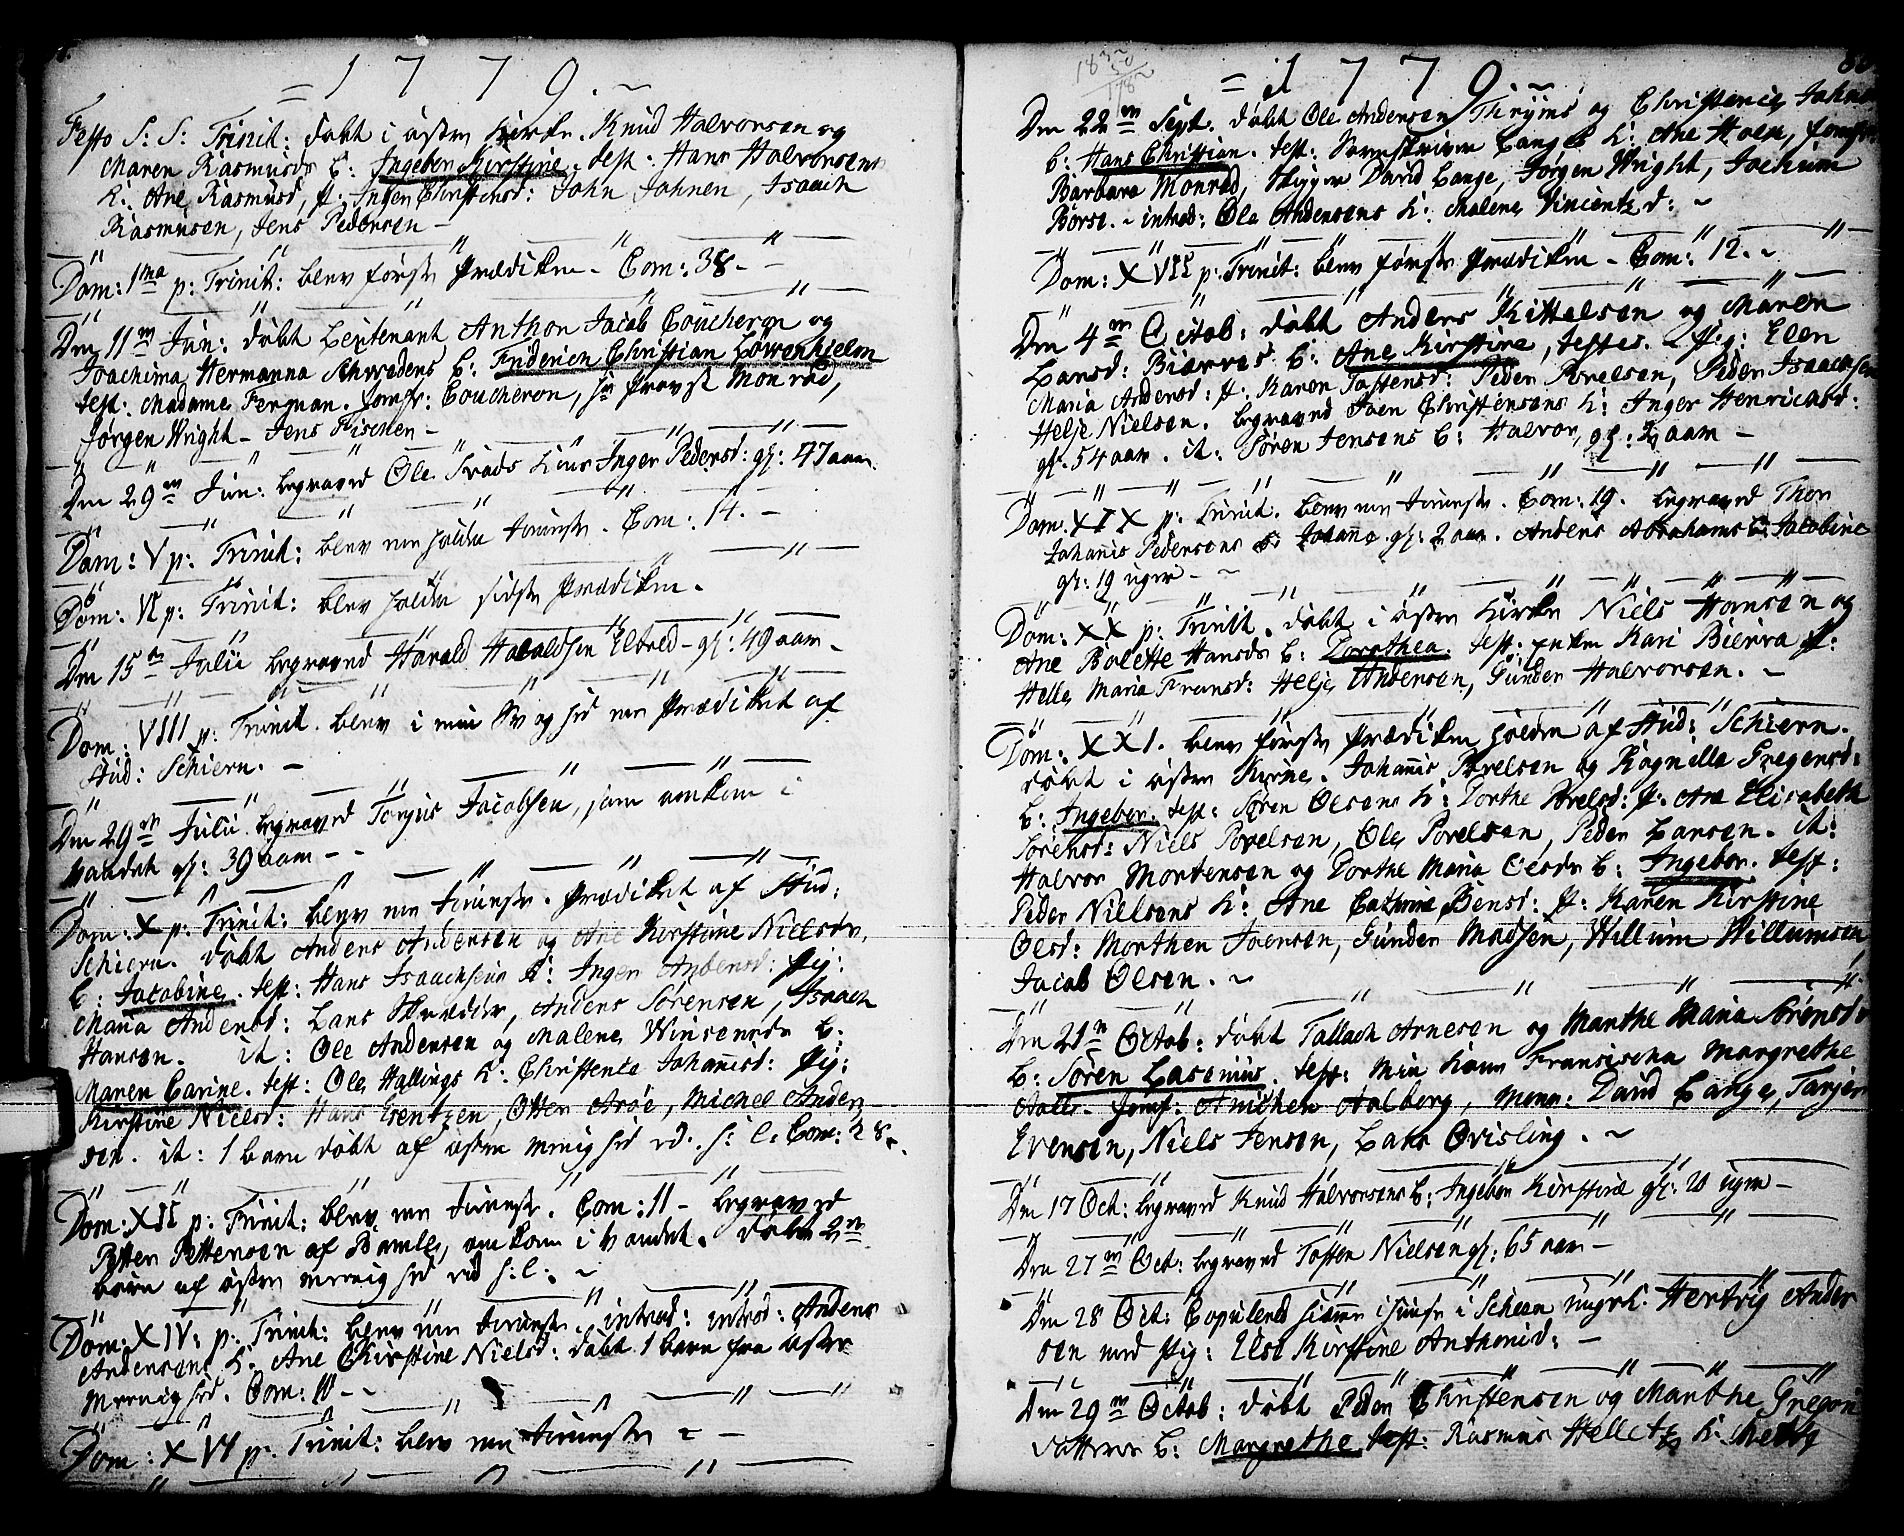 = 1 7 7 9. ~
Festo S: S: Trinit: døbt i østre Kirke. Knud Halvorsen og
Maren Rasmusds B: Ingebor Kirstine. test. Hans Halvorsens
K: Ane Rasmusd, p. Inger Christensd: John Johnen, Isaach
Rasmusen, Jens Pedersen –
Dom: 1ma p: Trinit: blev første Prædiken. Com: 38. –
Den 11te Jun: døbt Leutenant Anthon Jacob Coucheron og
Joachima Hermanna Schwedens B: Friderich Christian Løwenhielm
test: Madame Ferman. Jomfr: Coucheron, Hr Provst Monrad,
Jørgen Wright – Jens Fischer –
Den 29de Jun: begraved Ole Inger Pedersd: gl: 47 aar.
Dom: V p: Trinit: blev holden Com: 14. –
Dom: VI p: Trinit: blev holden sidste Prædiken.
Den 15de Julii begraved Harald Haraldsen gl: 49 aar –
Dom: VIII p: Trinit. blev i min prædiket af
Stud: Schiern. –
Den 29de Julii begraved Torjus Jacobsen, som omkom i
Vandet gl: 39 aar – -
Dom: X p: Trinit: blev prædiket af Stud:
Schiern. døbt Anders Andersen og Ane Kirstine Nielsdr.
B: Jacobine. test: Hans Isaachsens K: Inger Andersd: pig:
Maria Andersd: Lars Skræder, Anders Sørensen, Isaach
Hansen. it: Ole Andersen og Malene Winsensdr B:
Maren Carine. test: Ole Hallings K: Christence Johannsd: pig:
Kirstine Nielsd: Hans Gentzen, Otter Arøe, Michel Ander
sen. it: 1 barn døbt af østre menighed ved. H: l: Com: 28.
Dom: XII p: Trinit: blev Com: 11 – begraved
Petter Pettersen af Bamle, omkom i Vandet. døbt 2de
børn af østre menighed ved H: l: ~
Dom: XIV p: Trinit: blev introd: introd: Anders
Andersens K. Ane Chirstine Nielsd: døbt 1 barn fra østre
menighed. Com: 10 – -
Dom: XVI p: Trinit: blev –
= 1 7 7 9. ~
Den 22de Sept. døbt Ole Andersen og Christence Johan
B: Hans Christian. test: Lange K: Ane Hoen, Jomfr
Barbara Monrad, Skipper David Lange, Jørgen Wright, Jochum
Børse. ~ introd: Ole Andersens K: Malene Vincentz d: ~
Dom: XVII p: Trinit: blev første Prædiken – Com: 12. ~
Den 4de Octob: døbt Anders Kittelsen og Maren
Larsd: Biørves B: Ane Kirstine, testes. – Pig: Elen
Maria Andersd: p. Karen Tostensd: Peder Povelsen, Peder Isaachsen
Helje Nielsen. begraved Joen Christensens K: Inger Henrichsd:
gl: 54 aar. it: Søren Jensens B: Halvor, gl: 2 aar –
Dom: XIX p: Trinit. blev Com: 19. begraved Thor
Johannis Pedersens B: Johanna gl: 2 aar. Anders Abrahams B: Jacobine
gl: 19 uger – ~
Dom: XX p: Trinit. døbt i østre Kirke Niels Hansen og
Ane Bolette Hansdr B: Dorothea. test: enken Kari Bierva p:
Helle Maria Fransd: Helje Andersen, Gunder Halvorsen. ~
Dom: XXI. blev første Prædiken holden af Stud: Schiern.
døbt i østre Kirke. Johannis Povelsen og Ragnilla Gregersd:
B: Ingebor. test: Søren Olsens K: Dorthe Povelsd: p. Ane Elisabeth
Sørensd: Niels Povelsen, Ole Povelsen, Peder Larsen. it:
Halvor Mortensen og Dorthe Maria Olsdr B: Ingebor. test:
Peder Nielsens K: Ane Cathrine Bensd: p: Karen Kirstine
Olsd: Morthen Joensen, Gunder Madsen, Willum Willumsen,
Jacob Olsen. ~
Den 21de Octob: døbt Tallach Arnesen og Marthe Maria Sørensdr
B: Søren Lasenius. test: Min Kone Francischa Margrethe
Aalls. Jomf: Anichen Aalborg, Mons: David Lange, Tarjer
Evensen, Niels Jensen, Lars Qvisling. ~
Den 17 Oct: begraved Knud Halvorsens B: Ingebor Kirstine gl: 20 uger –
Den 27de Oct: begraved Tosten Nielsen gl: 65 aar –
Den 28 Oct: Copulered i Scheen Hertvig Ander
sen med Pig: Else Kirstine Anthonid: –
Den 29de Octob: døbt Peder Christensen og Marthe Gregori
datters B: Margrethe test: Rasmus K: Mette